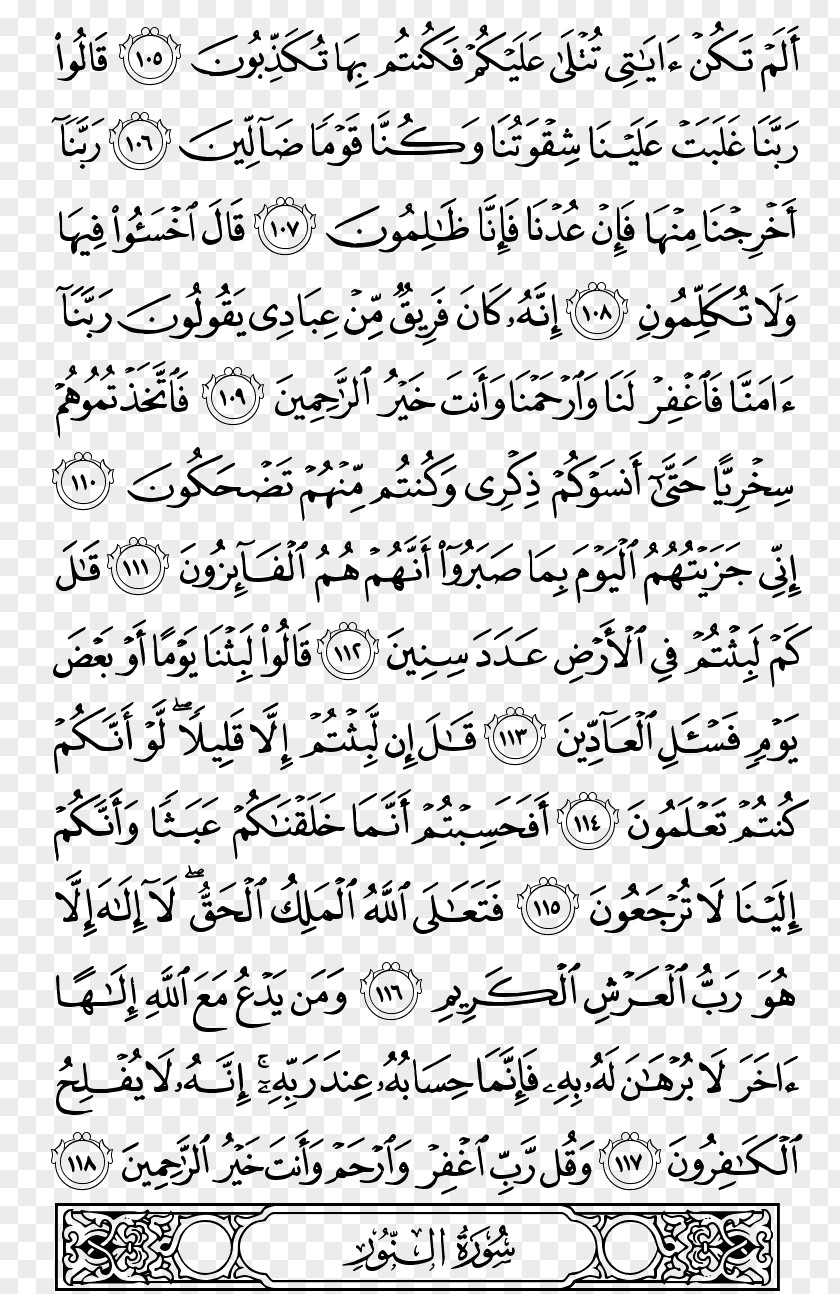 أَلَمْ تَكُنْ ءَايَـٰتِى تُتْلَىٰ عَلَيْكُمْ فَكُنتُم بِهَا تُكَذِّبُونَ ١٠٥ قَالُوا۟
رَبَّنَا غَلَبَتْ عَلَيْنَا شِقْوَتُنَا وَكُنَّا قَوْمًا ضَآلِّينَ ١٠٦ رَبَّنَآ
أَخْرِجْنَا مِنْهَا فَإِنْ عُدْنَا فَإِنَّا ظَـٰلِمُونَ ١٠٧ قَالَ ٱخْسَـُٔوا۟ فِيهَا
وَلَا تُكَلِّمُونِ ١٠٨ إِنَّهُۥ كَانَ فَرِيقٌ مِّنْ عِبَادِى يَقُولُونَ رَبَّنَآ
ءَامَنَّا فَٱغْفِرْ لَنَا وَٱرْحَمْنَا وَأَنتَ خَيْرُ ٱلرَّٰحِمِينَ ١٠٩ فَٱتَّخَذْتُمُوهُمْ
سِخْرِيًّا حَتَّىٰٓ أَنسَوْكُمْ ذِكْرِى وَكُنتُم مِّنْهُمْ تَضْحَكُونَ ١١٠
إِنِّى جَزَيْتُهُمُ ٱلْيَوْمَ بِمَا صَبَرُوٓا۟ أَنَّهُمْ هُمُ ٱلْفَآئِزُونَ ١١١ قَـٰلَ
كَمْ لَبِثْتُمْ فِى ٱلْأَرْضِ عَدَدَ سِنِينَ ١١٢ قَالُوا۟ لَبِثْنَا يَوْمًا أَوْ بَعْضَ
يَوْمٍ فَسْـَٔلِ ٱلْعَآدِّينَ ١١٣ قَـٰلَ إِن لَّبِثْتُمْ إِلَّا قَلِيلًا ۖ لَّوْ أَنَّكُمْ
كُنتُمْ تَعْلَمُونَ ١١٤ أَفَحَسِبْتُمْ أَنَّمَا خَلَقْنَـٰكُمْ عَبَثًا وَأَنَّكُمْ
إِلَيْنَا لَا تُرْجَعُونَ ١١٥ فَتَعَـٰلَى ٱللَّهُ ٱلْمَلِكُ ٱلْحَقُّ ۖ لَآ إِلَـٰهَ إِلَّا
هُوَ رَبُّ ٱلْعَرْشِ ٱلْكَرِيمِ ١١٦ وَمَن يَدْعُ مَعَ ٱللَّهِ إِلَـٰهًا
ءَاخَرَ لَا بُرْهَـٰنَ لَهُۥ بِهِۦ فَإِنَّمَا حِسَابُهُۥ عِندَ رَبِّهِۦٓ ۚ إِنَّهُۥ لَا يُفْلِحُ
ٱلْكَـٰفِرُونَ ١١٧ وَقُل رَّبِّ ٱغْفِرْ وَٱرْحَمْ وَأَنتَ خَيْرُ ٱلرَّٰحِمِينَ ١١٨
سُورَةُ النُّورِ